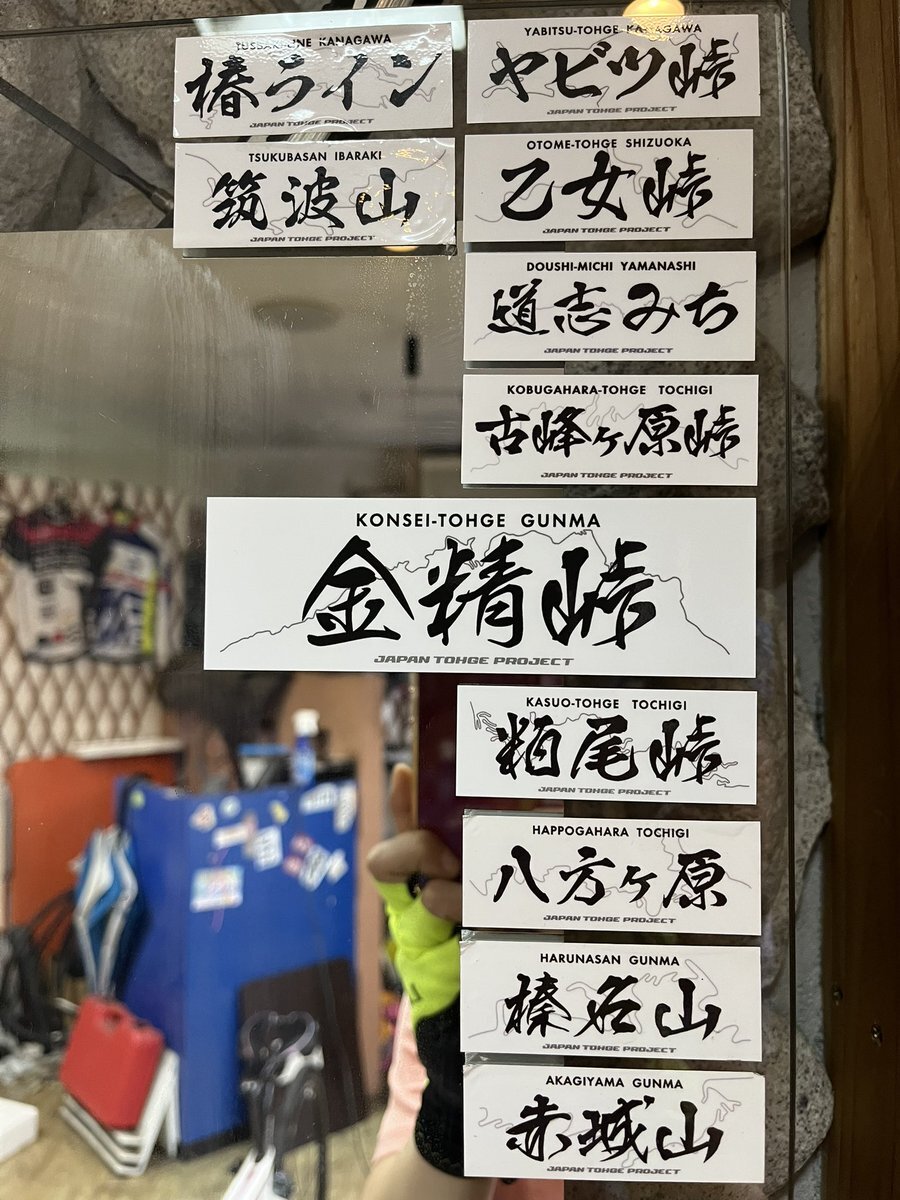 KANAGAWA
椿ライン
JAPAN TOHGE PROJECT
TSUKUBASAN IBARAKI
筑波山
JAPAN TOHGE PROJECT
YABITSU-TOHGE KANAGAWA
ヤビツ峠
JAPAN TOHGE PROJECT
OTOME-TOHGE SHIZUOKA
乙女峠
JAPAN TOHGE PROJECT
DOUSHI-MICHI YAMANASHI
道志みち
JAPAN TOHGE PROJECT
KOBUGAHARA-TOHGE TOCHIGI
古峰ヶ原峠
JAPAN TOHGE PROJECT
KONSEI-TOHGE GUNMA
金精峠
JAPAN TOHGE PROJECT
KASUO-TOHGE TOCHIGI
粕尾峠
JAPAN TOHGE PROJECT
HAPPOGAHARA TOCHIGI
八方ヶ原
JAPAN TOHGE PROJECT
HARUNASAN GUNMA
榛名山
JAPAN TOHGE PROJECT
AKAGIYAMA GUNMA
赤城山
JAPAN TOHGE PROJECT